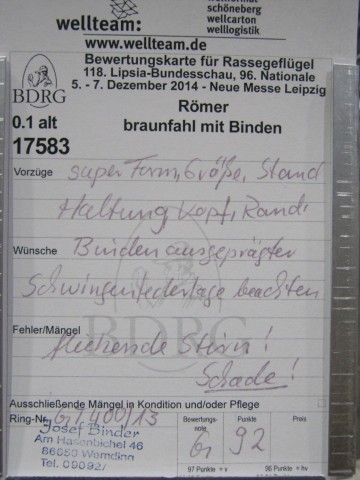 wellteam:
schöneberg
wellcarton
welllogistik
www.wellteam.de
BDRG
Bewertungskarte für Rassegeflügel
118. Lipsia-Bundesschau, 96. Nationale
5. - 7. Dezember 2014 - Neue Messe Leipzig
Römer
0.1 alt
braunfahl mit Binden
17583
Vorzüge super Form, Größe, Stand
Haltung Kopf, Rand.
Wünsche Binden ausgeprägter
Schwingenfederlage beachten
Fehler/Mängel fliehende Stirn!
Schade!
BDRG
Ausschließende Mängel in Kondition und/oder Pflege
Ring-Nr. 400/13
Bewertungs-note Punkte Preis
G 92
Josef Binder
Am Hasenbichel 46
86650 Wemding
Tel. 09092/
97 Punkte = v 96 Punkte = hv